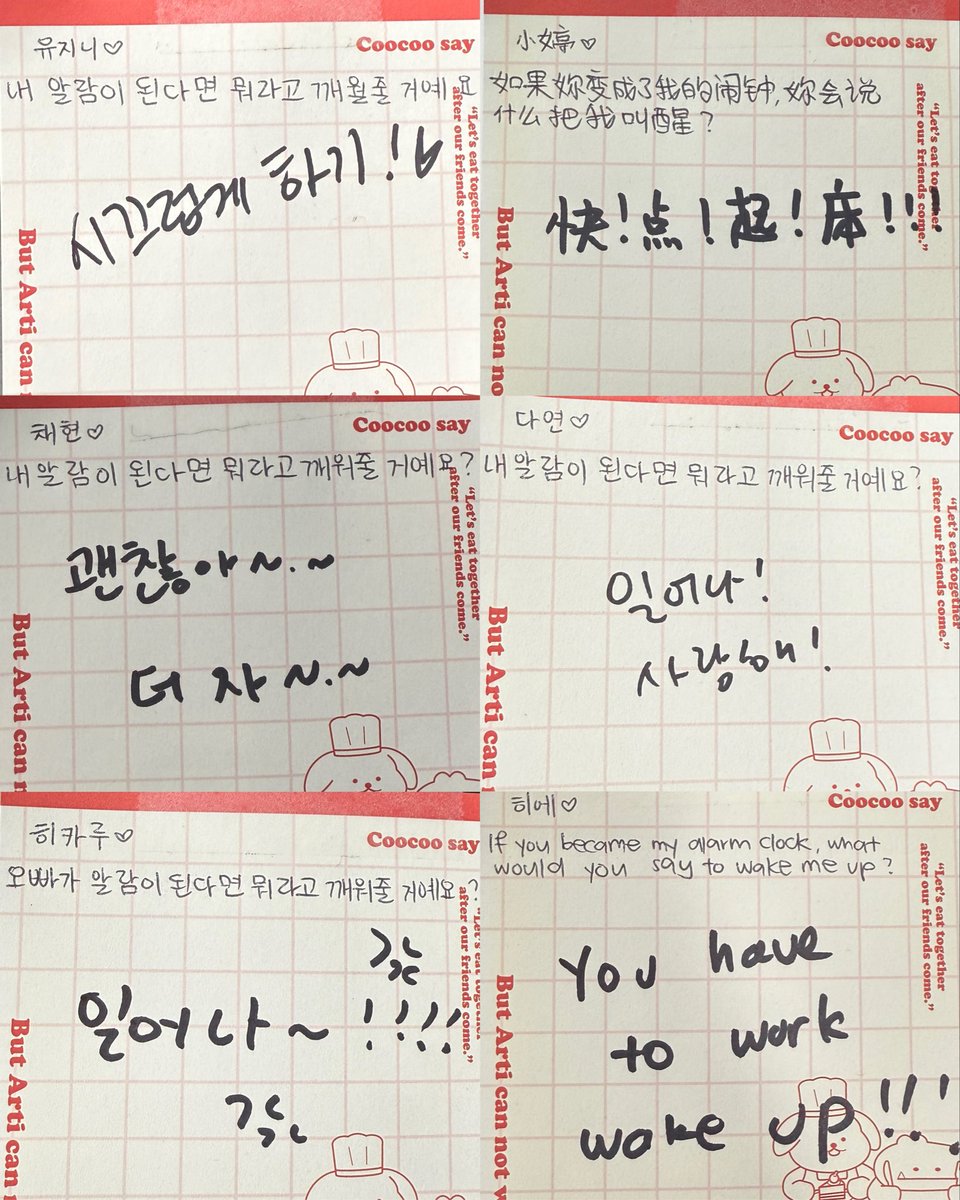 유지니♡
Coocoo say
내 알람이 된다면 뭐라고 깨월줄 거예요
"Let's eat together
after our friends come."
시끄럽게 하기!
But Arti can no
小婷♡
Coocoo say
如果妳变成了我的闹钟,妳会说
什么把我叫醒?
"Let's eat together
after our friends come."
快!点!起!床!!
But Arti can no
채현♡
Coocoo say
내 알람이 된다면 뭐라고 깨워줄 거예요?
"Let's eat together
after our friends come."
괜찮아~.~
더 자~.~
But Arti can n
다연♡
Coocoo say
내 알람이 된다면 뭐라고 깨워줄 거예요?
"Let's eat together
after our friends come."
일어나!
사랑해!
But Arti can n
히카루♡
Coocoo say
오빠가 알람이 된다면 뭐라고 깨워줄 거예요?
"Let's eat together
after our friends come."
일어나~!!!!
But Arti can
히에♡
Coocoo say
If you became my alarm clock, what
would you say to wake me up?
"Let's eat together
after our friends come."
You have
to work
wake up!!!
But Arti can not w